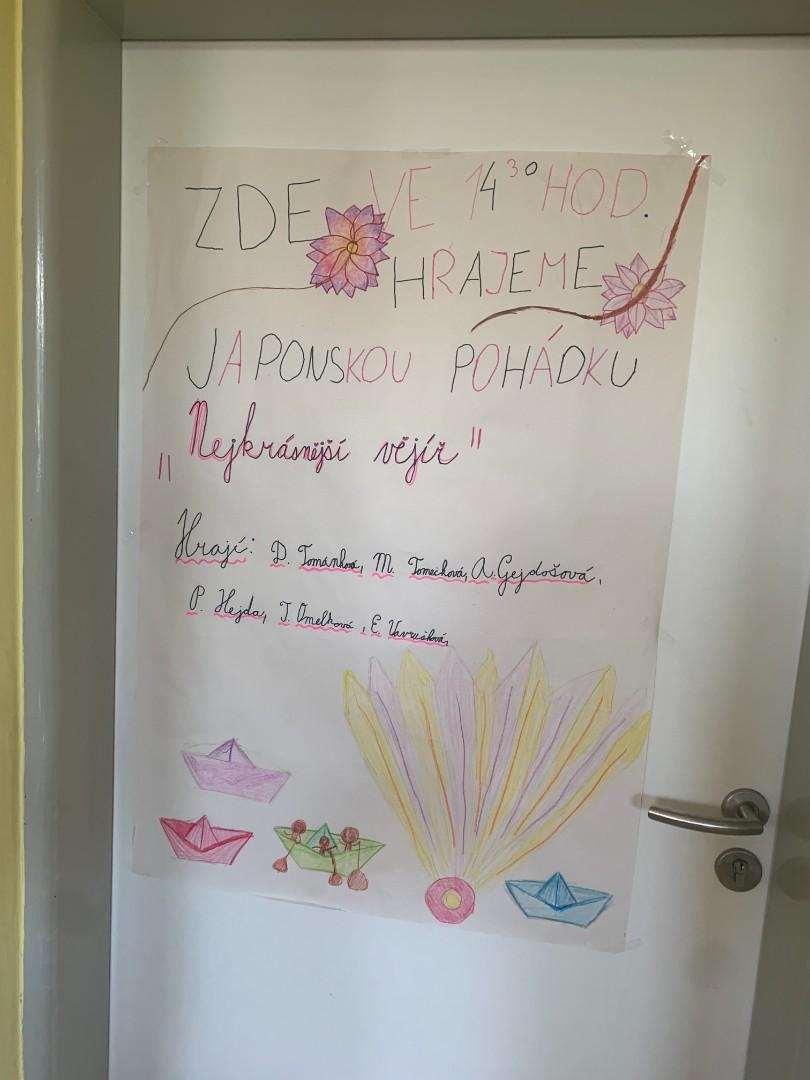 ZDE VE 14³⁰ HOD.
HRAJEME
JAPONSKOU POHÁDKU
„Nejkrásnější vějíř"
Hrají: D. Tománková, M. Tomečková, A. Gejdošová,
P. Hejda, T. Omelková, E. Vavrušková,